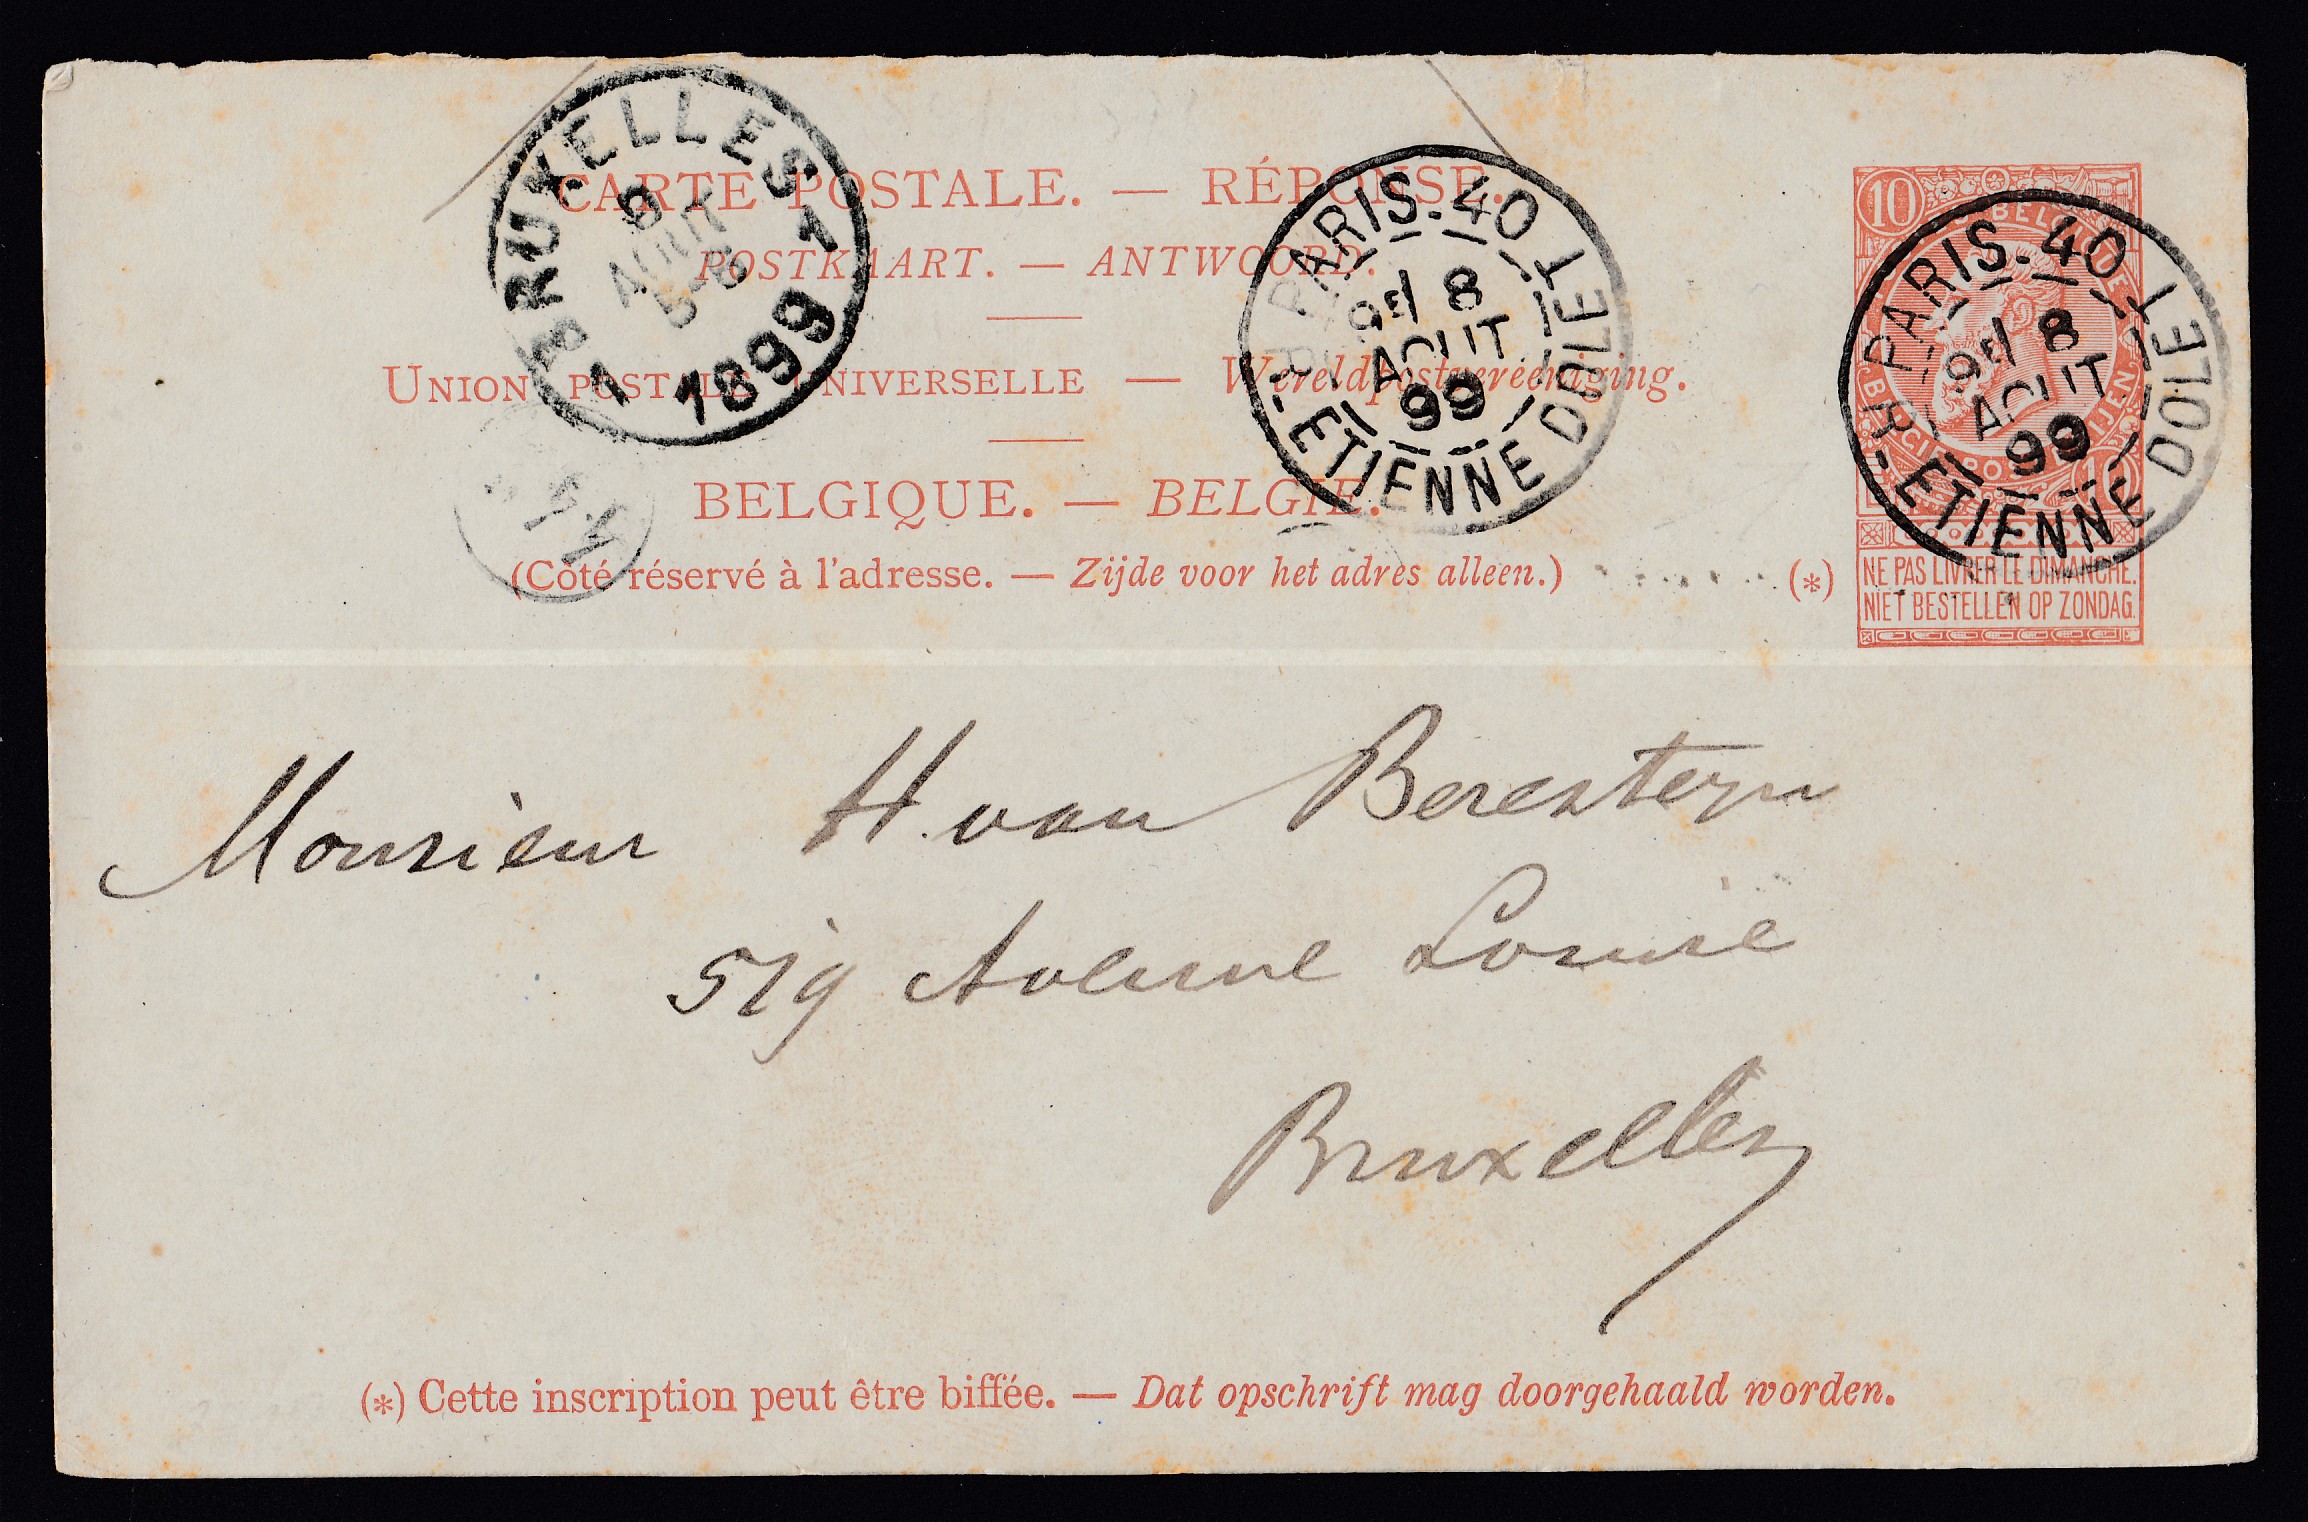 CARTE POSTALE. — RÉPONSE.
POSTKAART. — ANTWOORD.
UNION POSTALE UNIVERSELLE — Wereldpostvereeniging.
BELGIQUE. — BELGIE.
(Côté réservé à l'adresse. — Zijde voor het adres alleen.)
(*)
BRUXELLES 1
9
AOUT
5-6
1899
1
PARIS-40
8
AOUT
99
R. ETIENNE DOLET
10
BELGIQUE
PARIS-40
8
AOUT
99
R. ETIENNE DOLET
NE PAS LIVRER LE DIMANCHE.
NIET BESTELLEN OP ZONDAG.
Monsieur H. van Beresteyn
519 Avenue Louise
Bruxelles
(*) Cette inscription peut être biffée. — Dat opschrift mag doorgehaald worden.